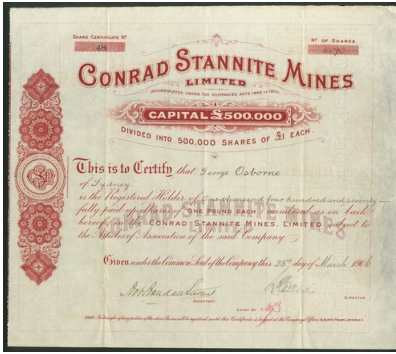 SHARE CERTIFICATE Nº
Nº OF SHARES
48
CONRAD STANNITE MINES
LIMITED
INCORPORATED UNDER THE COMPANIES ACTS 1862 TO 1900
CAPITAL £500.000
DIVIDED INTO 500,000 SHARES OF £1 EACH
This is to Certify that George Osborne
of Sydney
is the Registered Holder four hundred and seventy
fully paid up shares of ONE POUND EACH numbered as on back
hereof CONRAD STANNITE MINES, LIMITED subject to
the Articles of Association of the said Company.
Given under the Common Seal of the Company this 23rd day of March 1906
SECRETARY
DIRECTOR